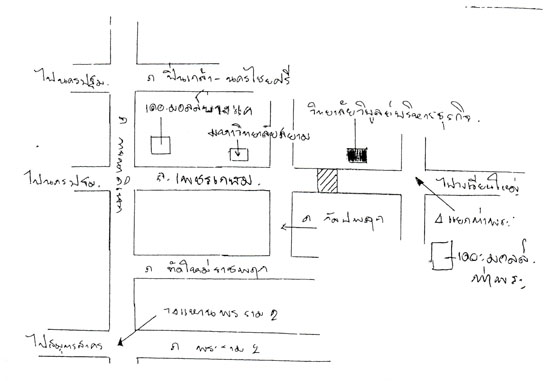 ไปนครปฐม.
ถ ปิ่นเกล้า-นครไชยศรี
เดอะมอลล์บางแค
มหาวิทยาลัยสยาม
วิทยาลัยวิบูลย์บริหารธุรกิจ.
ถ กาญจนาภิเษก
ไปนครปฐม.
ถ. เพชรเกษม.
ไปวงเวียนใหญ่
แยกท่าพระ
เดอะมอลล์
ท่าพระ
ถ ตัดใหม่ราชพฤกษ์
วงแหวนพระราม 2
ไปสมุทรสาคร
ถ พระราม 2